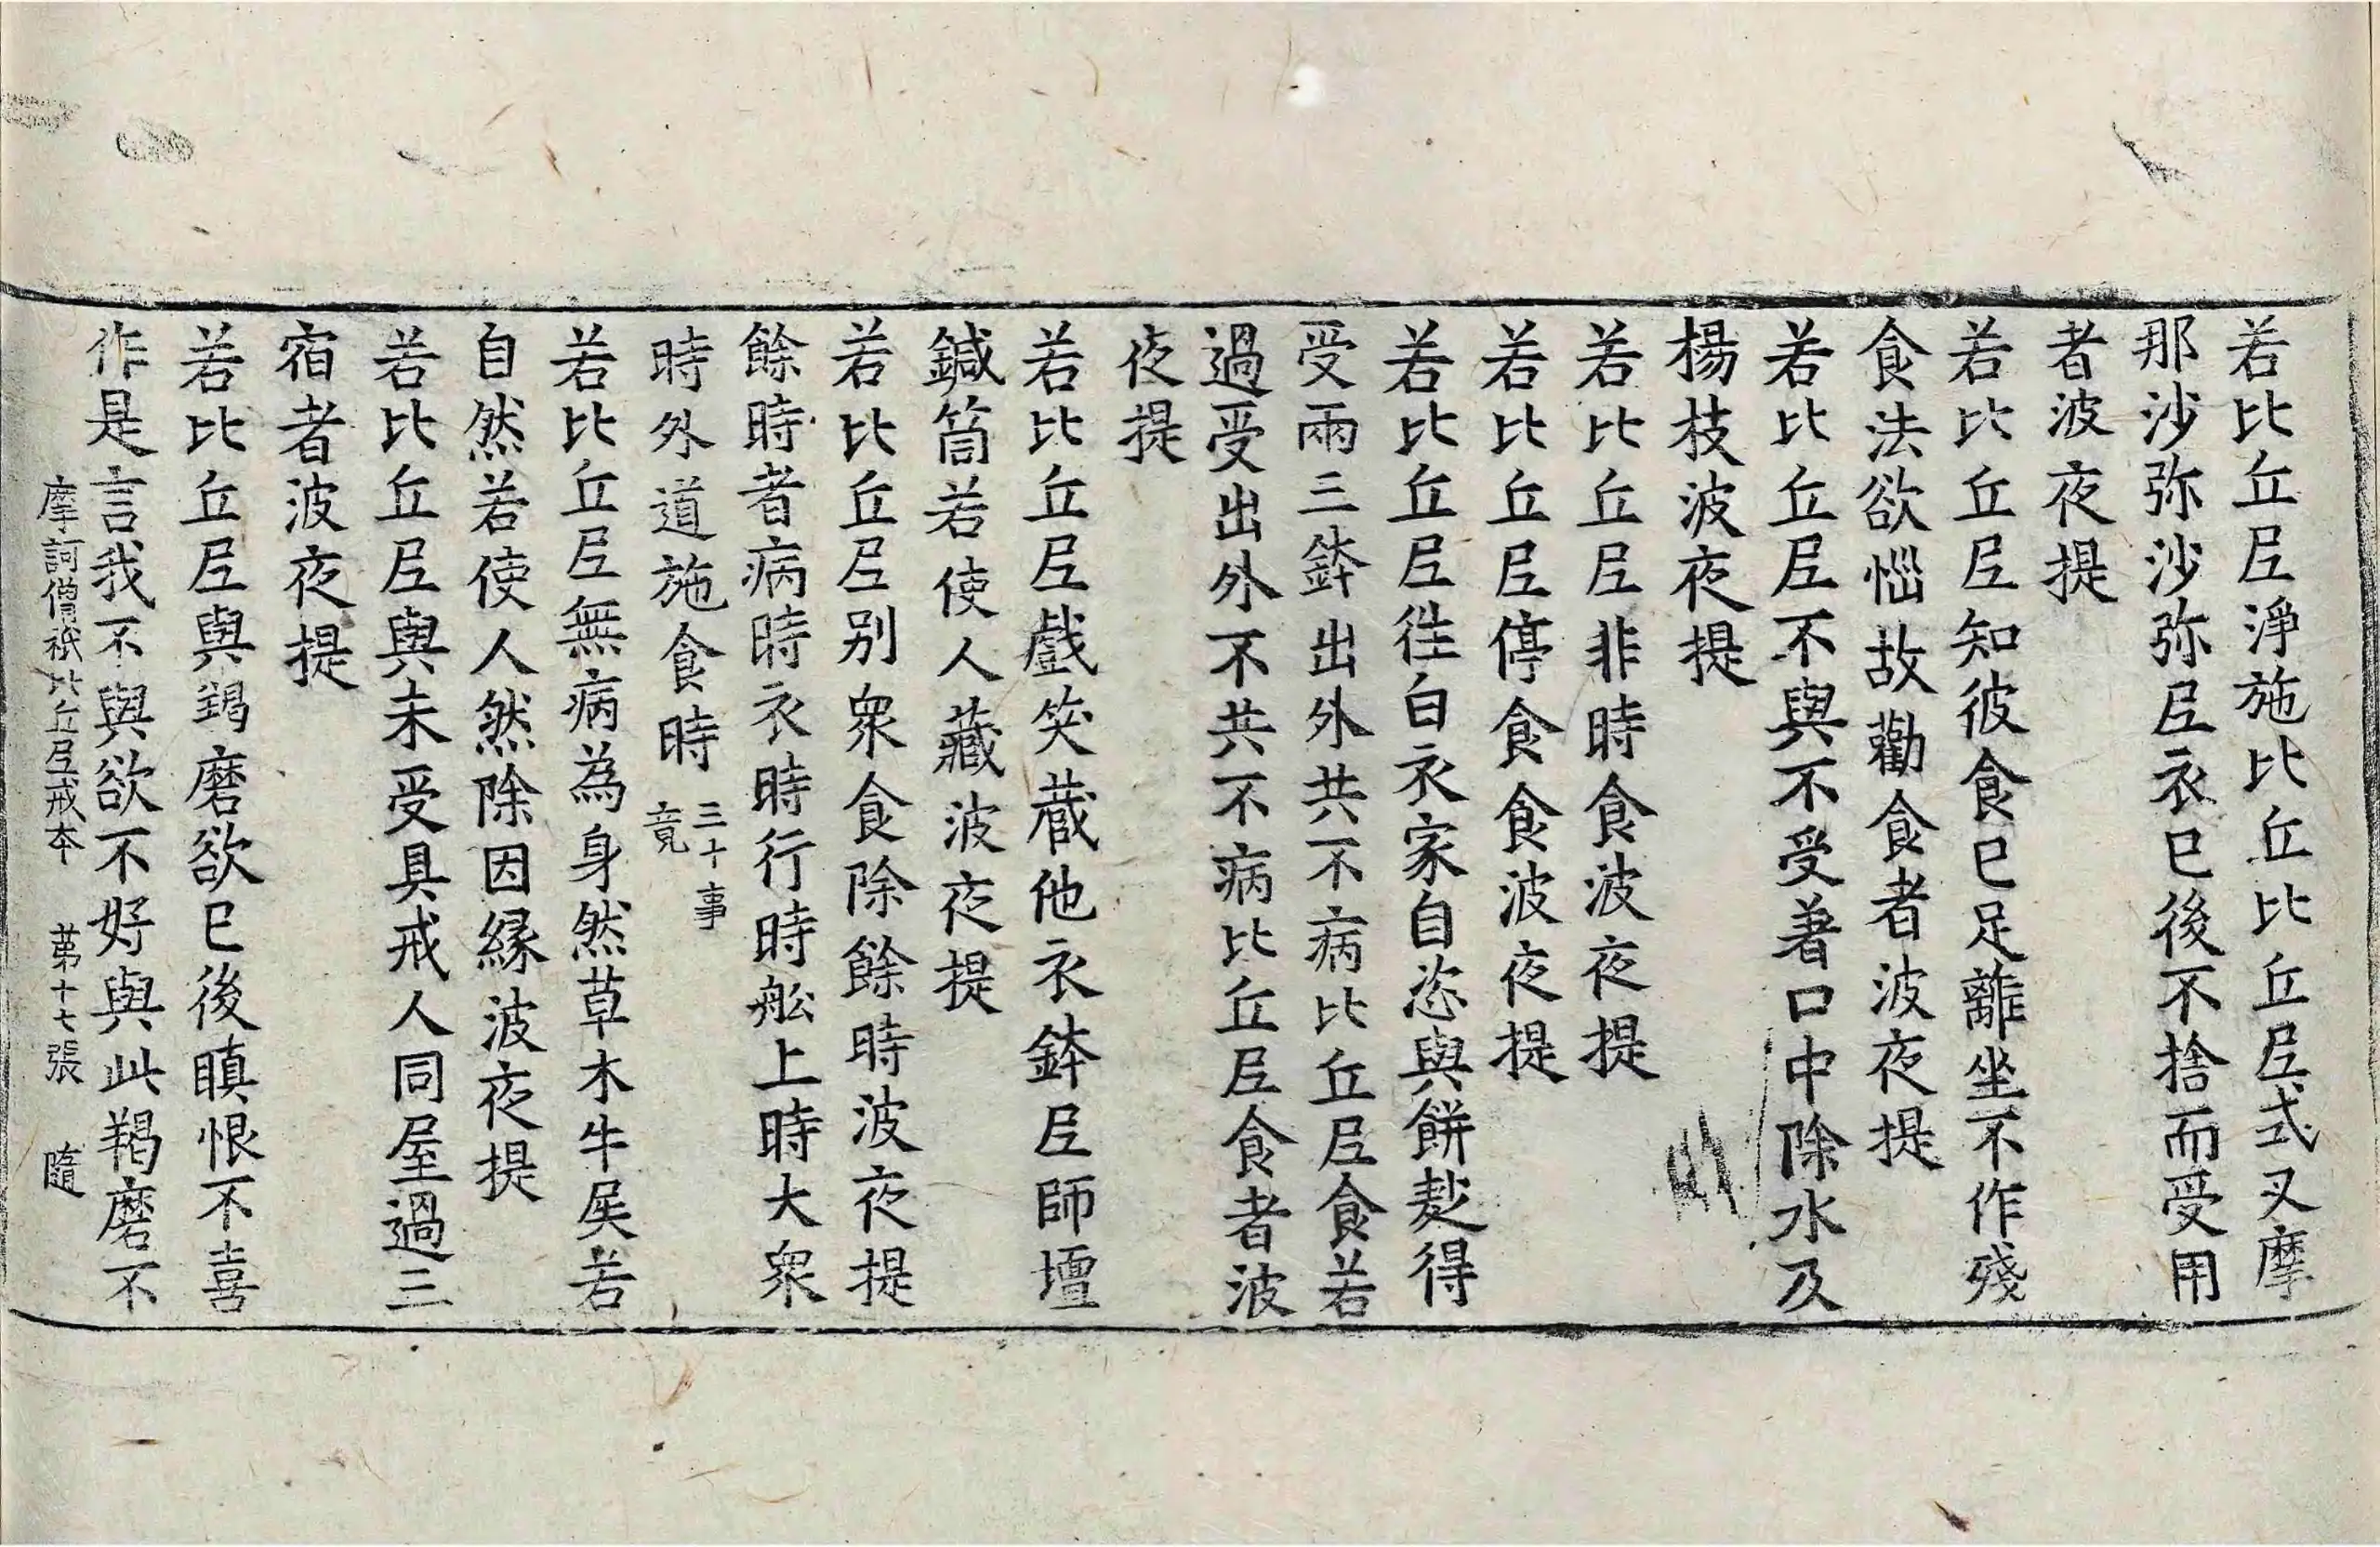 若比丘尼淨施比丘比丘尼式叉摩
那沙弥沙弥尼衣已後不捨而受用
者波夜提
若比丘尼知彼食已足離坐不作殘
食法欲惱故勸食者波夜提
若比丘尼不與不受著口中除水及
楊枝波夜提
若比丘尼非時食波夜提
若比丘尼停食食波夜提
若比丘尼往白衣家自恣與餅麨得
受兩三鉢出外共不病比丘尼食若
過受出外不共不病比丘尼食者波
夜提
若比丘尼戲笑蔵他衣鉢尼師壇
鍼筒若使人藏波夜提
若比丘尼别衆食除餘時波夜提
餘時者病時衣時行時舩上時大衆
時外道施食時 三十事
竟
若比丘尼無病為身然草木牛屎若
自然若使人然除因縁波夜提
若比丘尼與未受具戒人同屋過三
宿者波夜提
若比丘尼與羯磨欲已後瞋恨不喜
作是言我不與欲不好與此羯磨不
摩訶僧祇比丘尼戒本 苐十七張 隨